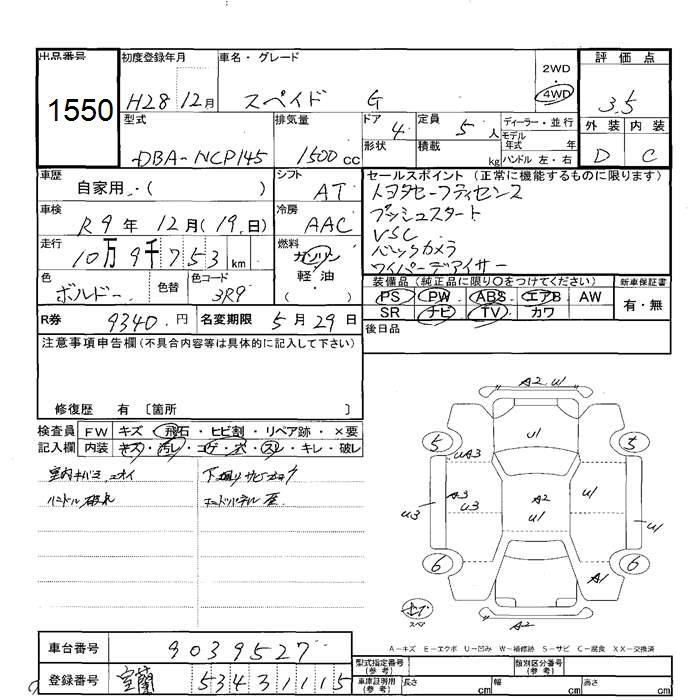 出品番号 初度登録年月 車名・グレード 2WD 評価点
1550 H28 12月 スペイド G 4WD 3.5
外装 内装
D C
型式 排気量 ドア 4 定員 5人 ディーラー・並行
DBA-NCP145 1500cc 形状 積載 kg モデル年式 年
ハンドル 左・右
車歴 シフト セールスポイント (正常に機能するものに限ります)
自家用・( ) AT トヨタセーフティセンス
車検 冷房 プッシュスタート
R9年 12月(19.日) AAC VSC
走行 燃料 バックカメラ
10万9千753km ガソリン ワイパーデアイサー
軽・油
( )
色 色替 色コード 装備品(純正品に限り○をつけてください) 新車保証書
ボルドー 3R9 PS PW ABS エアB AW 有・無
SR ナビ TV カワ
R券 9340.円 名変期限 5月29日 後日品
注意事項申告欄(不具合内容等は具体的に記入して下さい)
修復歴 有 〔箇所 〕
検査員 FW キズ・飛石・ヒビ割・リペア跡・×要
記入欄 内装 キズ・汚レ・コゲ・穴・スレ・キレ・破レ
ハンドル
A2 U1
U1
5 5
UA3
A3
U3 U3 A2 U1 U1
U1
6 6
A1
スペア
A2
A-キズ E-エクボ U-凹み W-補修跡 S-サビ C-腐食 XX-交換済
車台番号 9039527
登録番号 室蘭 534 3 1115
型式指定番号(参考) 類別区分番号(参考)
車庫証明用(参考) 長さ cm 幅 cm 高さ cm